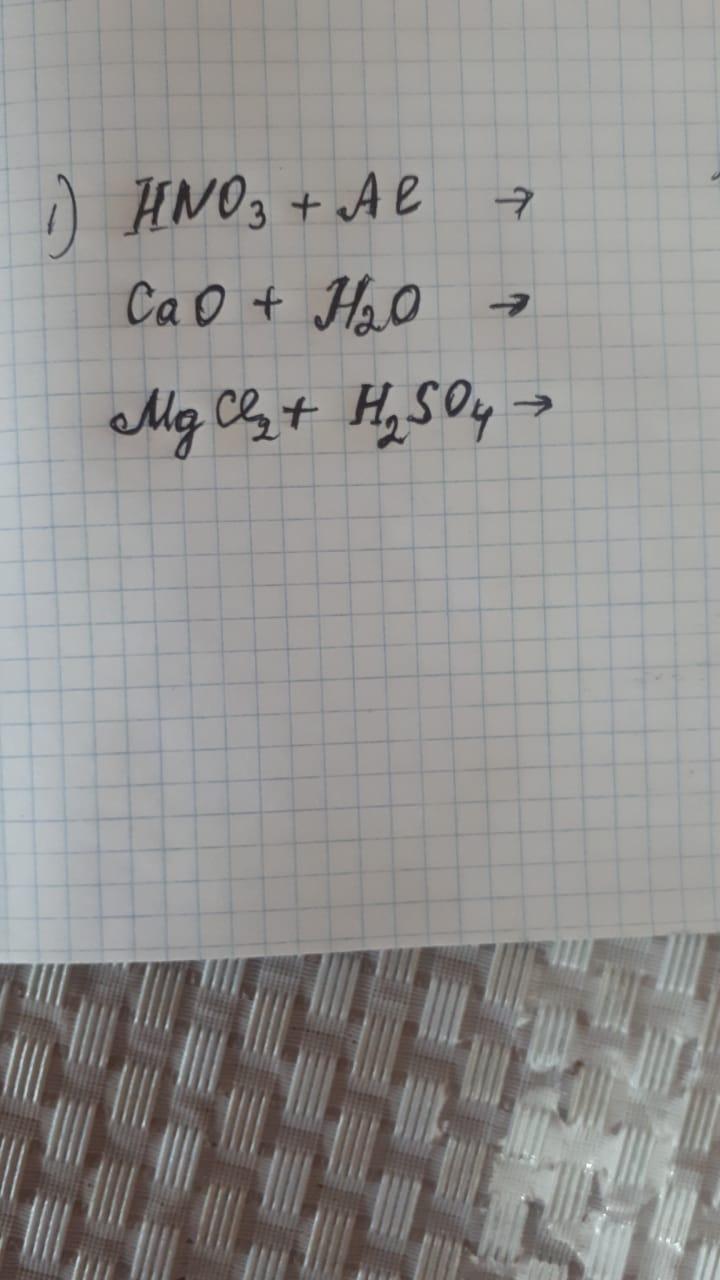 1) HNO₃ + Al →
CaO + H₂O →
MgCl₂ + H₂SO₄ →